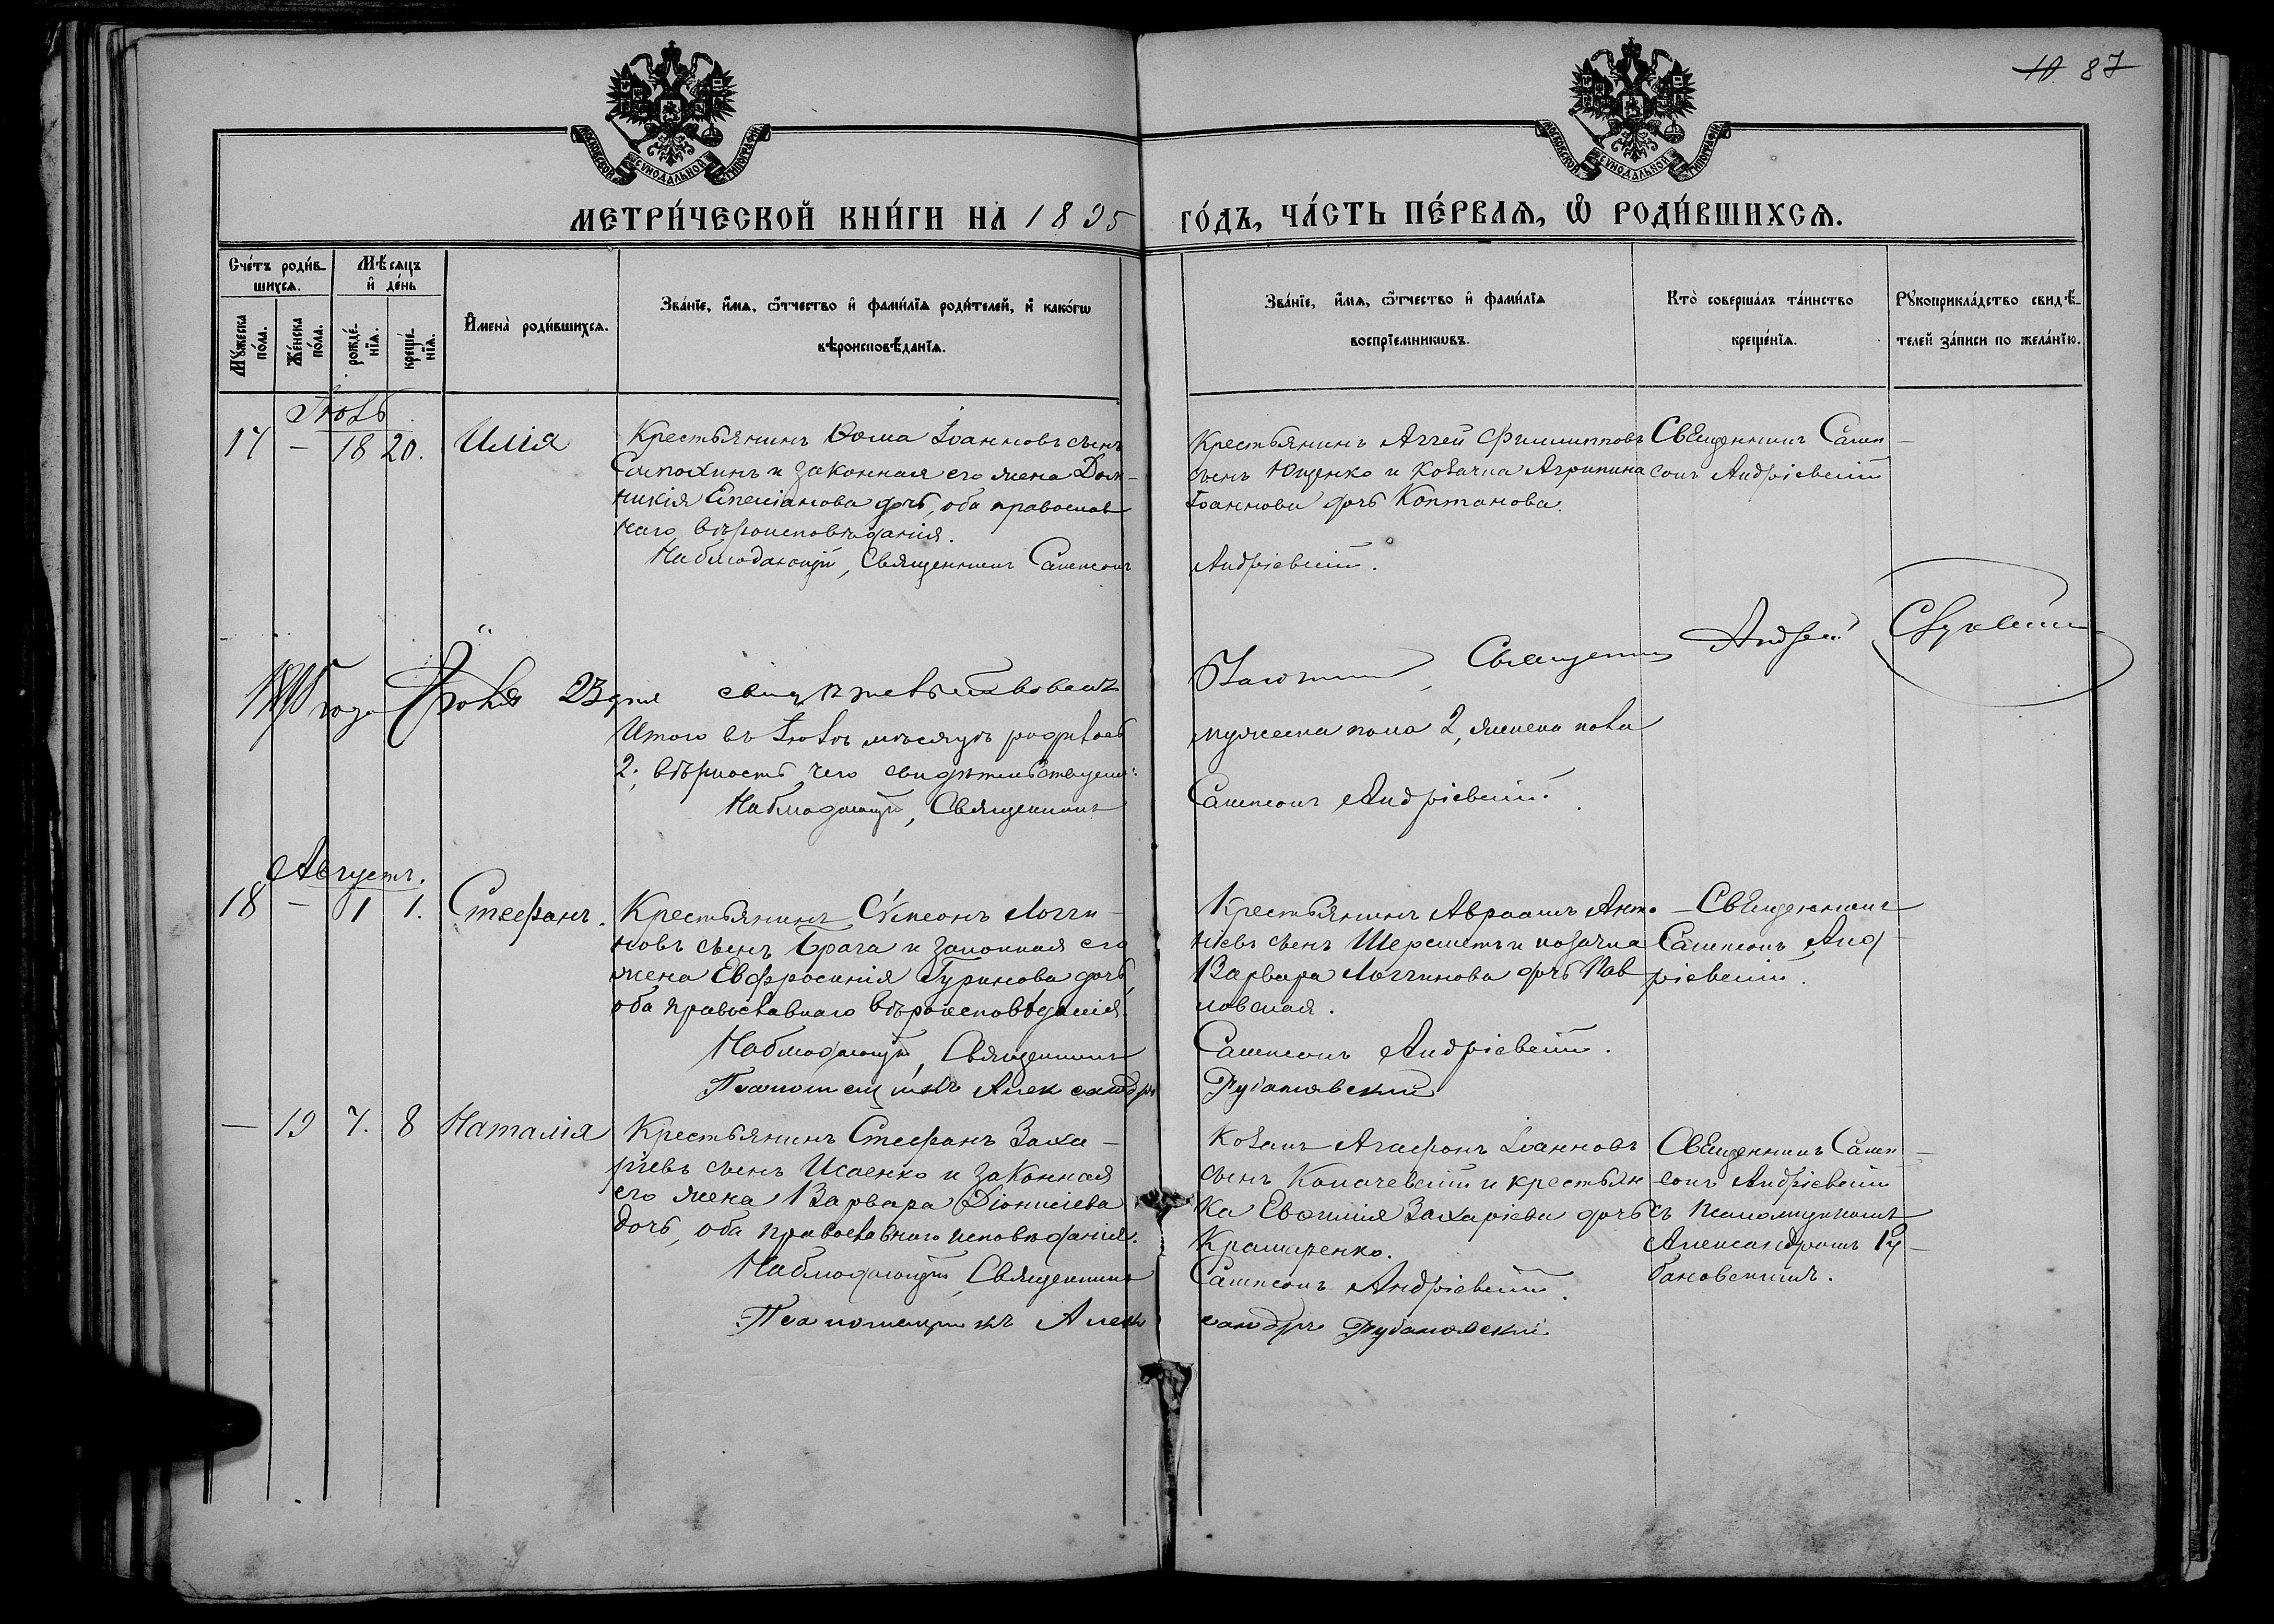 10. 87
МОСКОВСКОЙ СѴНОДАЛЬНОЙ ТИПОГРАФІИ
МОСКОВСКОЙ СѴНОДАЛЬНОЙ ТИПОГРАФІИ
МЕТРИ́ЧЕСКОЙ КНИ́ГИ НА 1895 ГО́ДЪ, ЧА́СТЬ ПЕ́РВАѦ, Ѡ҆ РОДИ́ВШИХСѦ.
Сче́тъ роди́в-
шихсѧ.
Мꙋ́жеска по́ла.
Же́нска по́ла.
Мѣ́сѧцъ
и҆ де́нь
рожде́-нїѧ.
креще́-нїѧ.
И҆мена̀ роди́вшихсѧ.
Зва́нїе, и҆́мѧ, ѻ҆́тчество и҆ фами́лїѧ роди́телей, и҆ како́гѡ
вѣроисповѣ́данїѧ.
Зва́нїе, и҆́мѧ, ѻ҆́тчество и҆ фами́лїѧ
воспрїемникѡвъ.
Кто̀ соверша́лъ та́инство
креще́нїѧ.
Рꙋкоприкла́дство свидѣ́-
телей за́писи по жела́нїю.
Іюль
17 – 18 20. Илія
Крестьянинъ Ѳома Іоанновъ сынъ
и законная его жена Дом-
никія дочь, оба православ
наго вѣроисповѣданія.
Наблюдающій, Священникъ Сампсонъ
Крестьянинъ Аггей Филипповъ
сынъ Ющенко и Козачка Агрипина
Іоаннова дочь Коптанова.
Андріевскій.
Священникъ Самп-
сонъ Андріевскій
1895 года Іюля 23 дня свидѣтельствовалъ
Священникъ Андрей
Итого въ Іюль мѣсяцѣ родилось
мужеска пола 2, женска пола
2; вѣрность чего свидѣтельствуемъ:
Наблюдающій, Священникъ
Сампсонъ Андріевскій.
Августъ.
18 – 1 1. Стефанъ.
Крестьянинъ Сѵмеонъ Логги-
новъ сынъ Брага и законная его
жена Евфросинія Гуринова дочь,
оба православнаго вѣроисповѣданія.
Наблюдающій, Священникъ
Псаломщикъ Александръ
Крестьянинъ Авраамъ Анто-
ніевъ сынъ Шереметъ и козачка
Варвара Логгинова дочь Пав
ловская.
Сампсонъ Андріевскій.
Рубановскій
Священникъ
Сампсонъ Анд-
ріевскій.
– 19 7. 8 Наталія
Крестьянинъ Стефанъ Заха-
ріевъ сынъ Исаенко и законная
его жена Варвара Діонисіева
дочь, оба православнаго исповѣданія.
Наблюдающій, Священникъ
Псаломщикъ Алек
Козакъ Агафонъ Іоанновъ
сынъ Копачевскій и крестьян
ка Евѳимія Захаріева дочь
Крамаренко.
Сампсонъ Андріевскій.
сандръ Рубановскій.
Священникъ Самп-
сонъ Андріевскій
съ псаломщикомъ
Александромъ Ру-
бановскимъ.